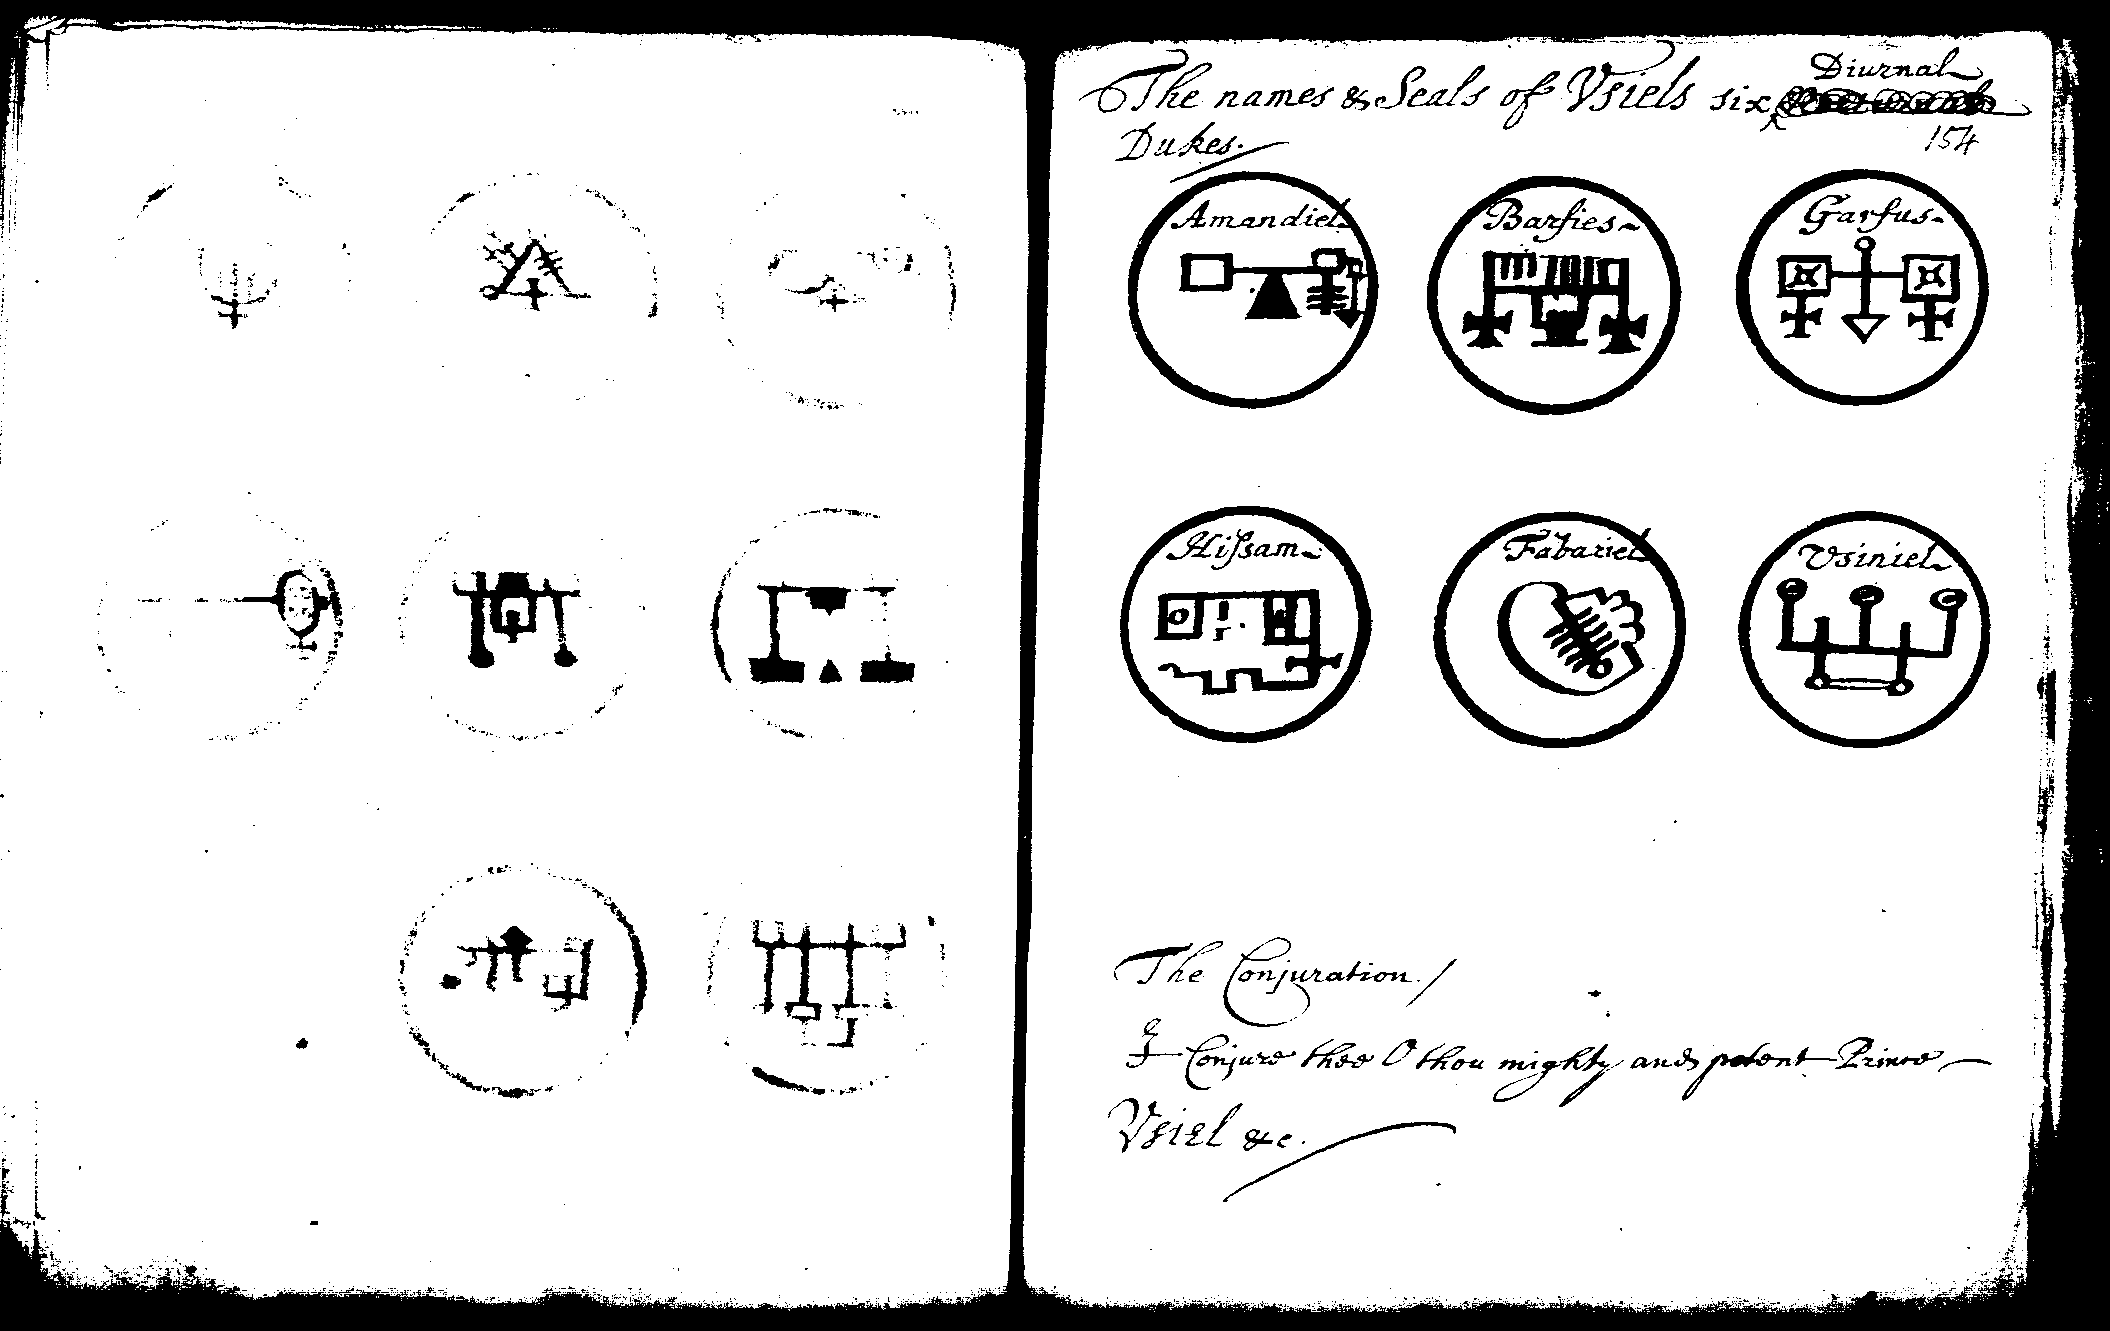 The names & Seals of Vsiels six Diurnal
Dukes.
154
Amandiel
Barfies
Garfus
Hiſsam
Fabariel
Vsiniel
The Conjuration /
I Conjure thee O thou mighty and potent Prince
Vsiel &c.